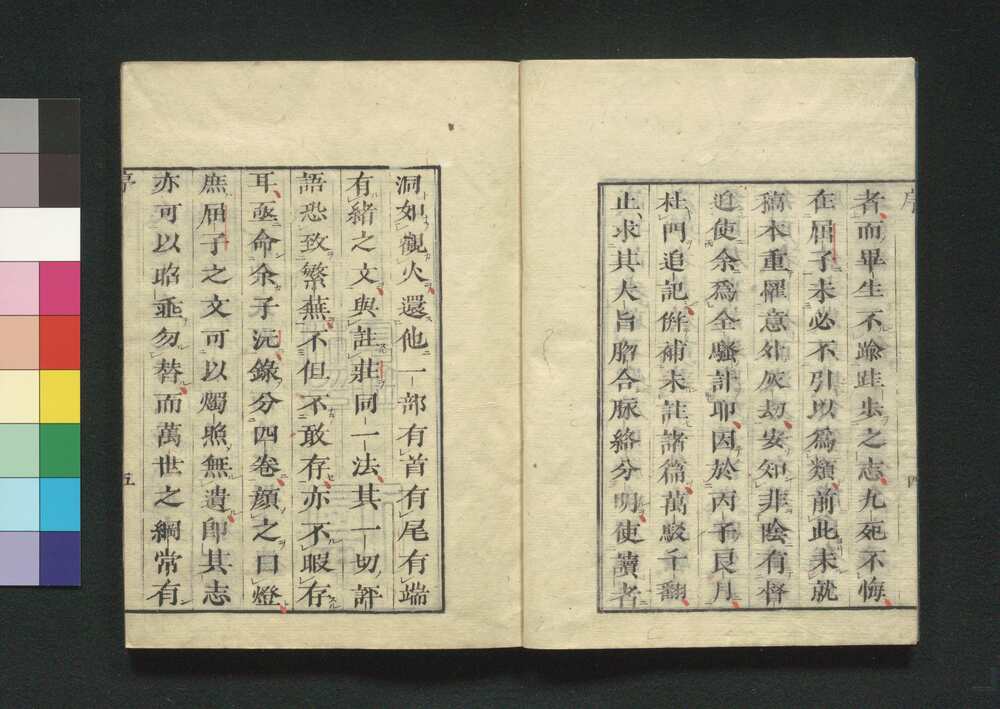 序
四
者而畢生不踰跬步之志九死不悔
在屈子未必不引以爲類前此未就
稿本重罹意外灰劫安知非陰有督
迫使余爲全騷計耶因於丙子艮月
杜門追記併補未註諸篇萬駁千翻
止求其大旨脗合脉絡分明使讀者
洞如觀火還他一部有首有尾有端
有緒之文與註莊同一法其一切評
語恐致繁蕪不但不敢存亦不暇存
耳亟命余子沅錄分四卷顏之曰燈
庶屈子之文可以燭照無遺卽其志
亦可以昭垂勿替而萬世之綱常有
序
五